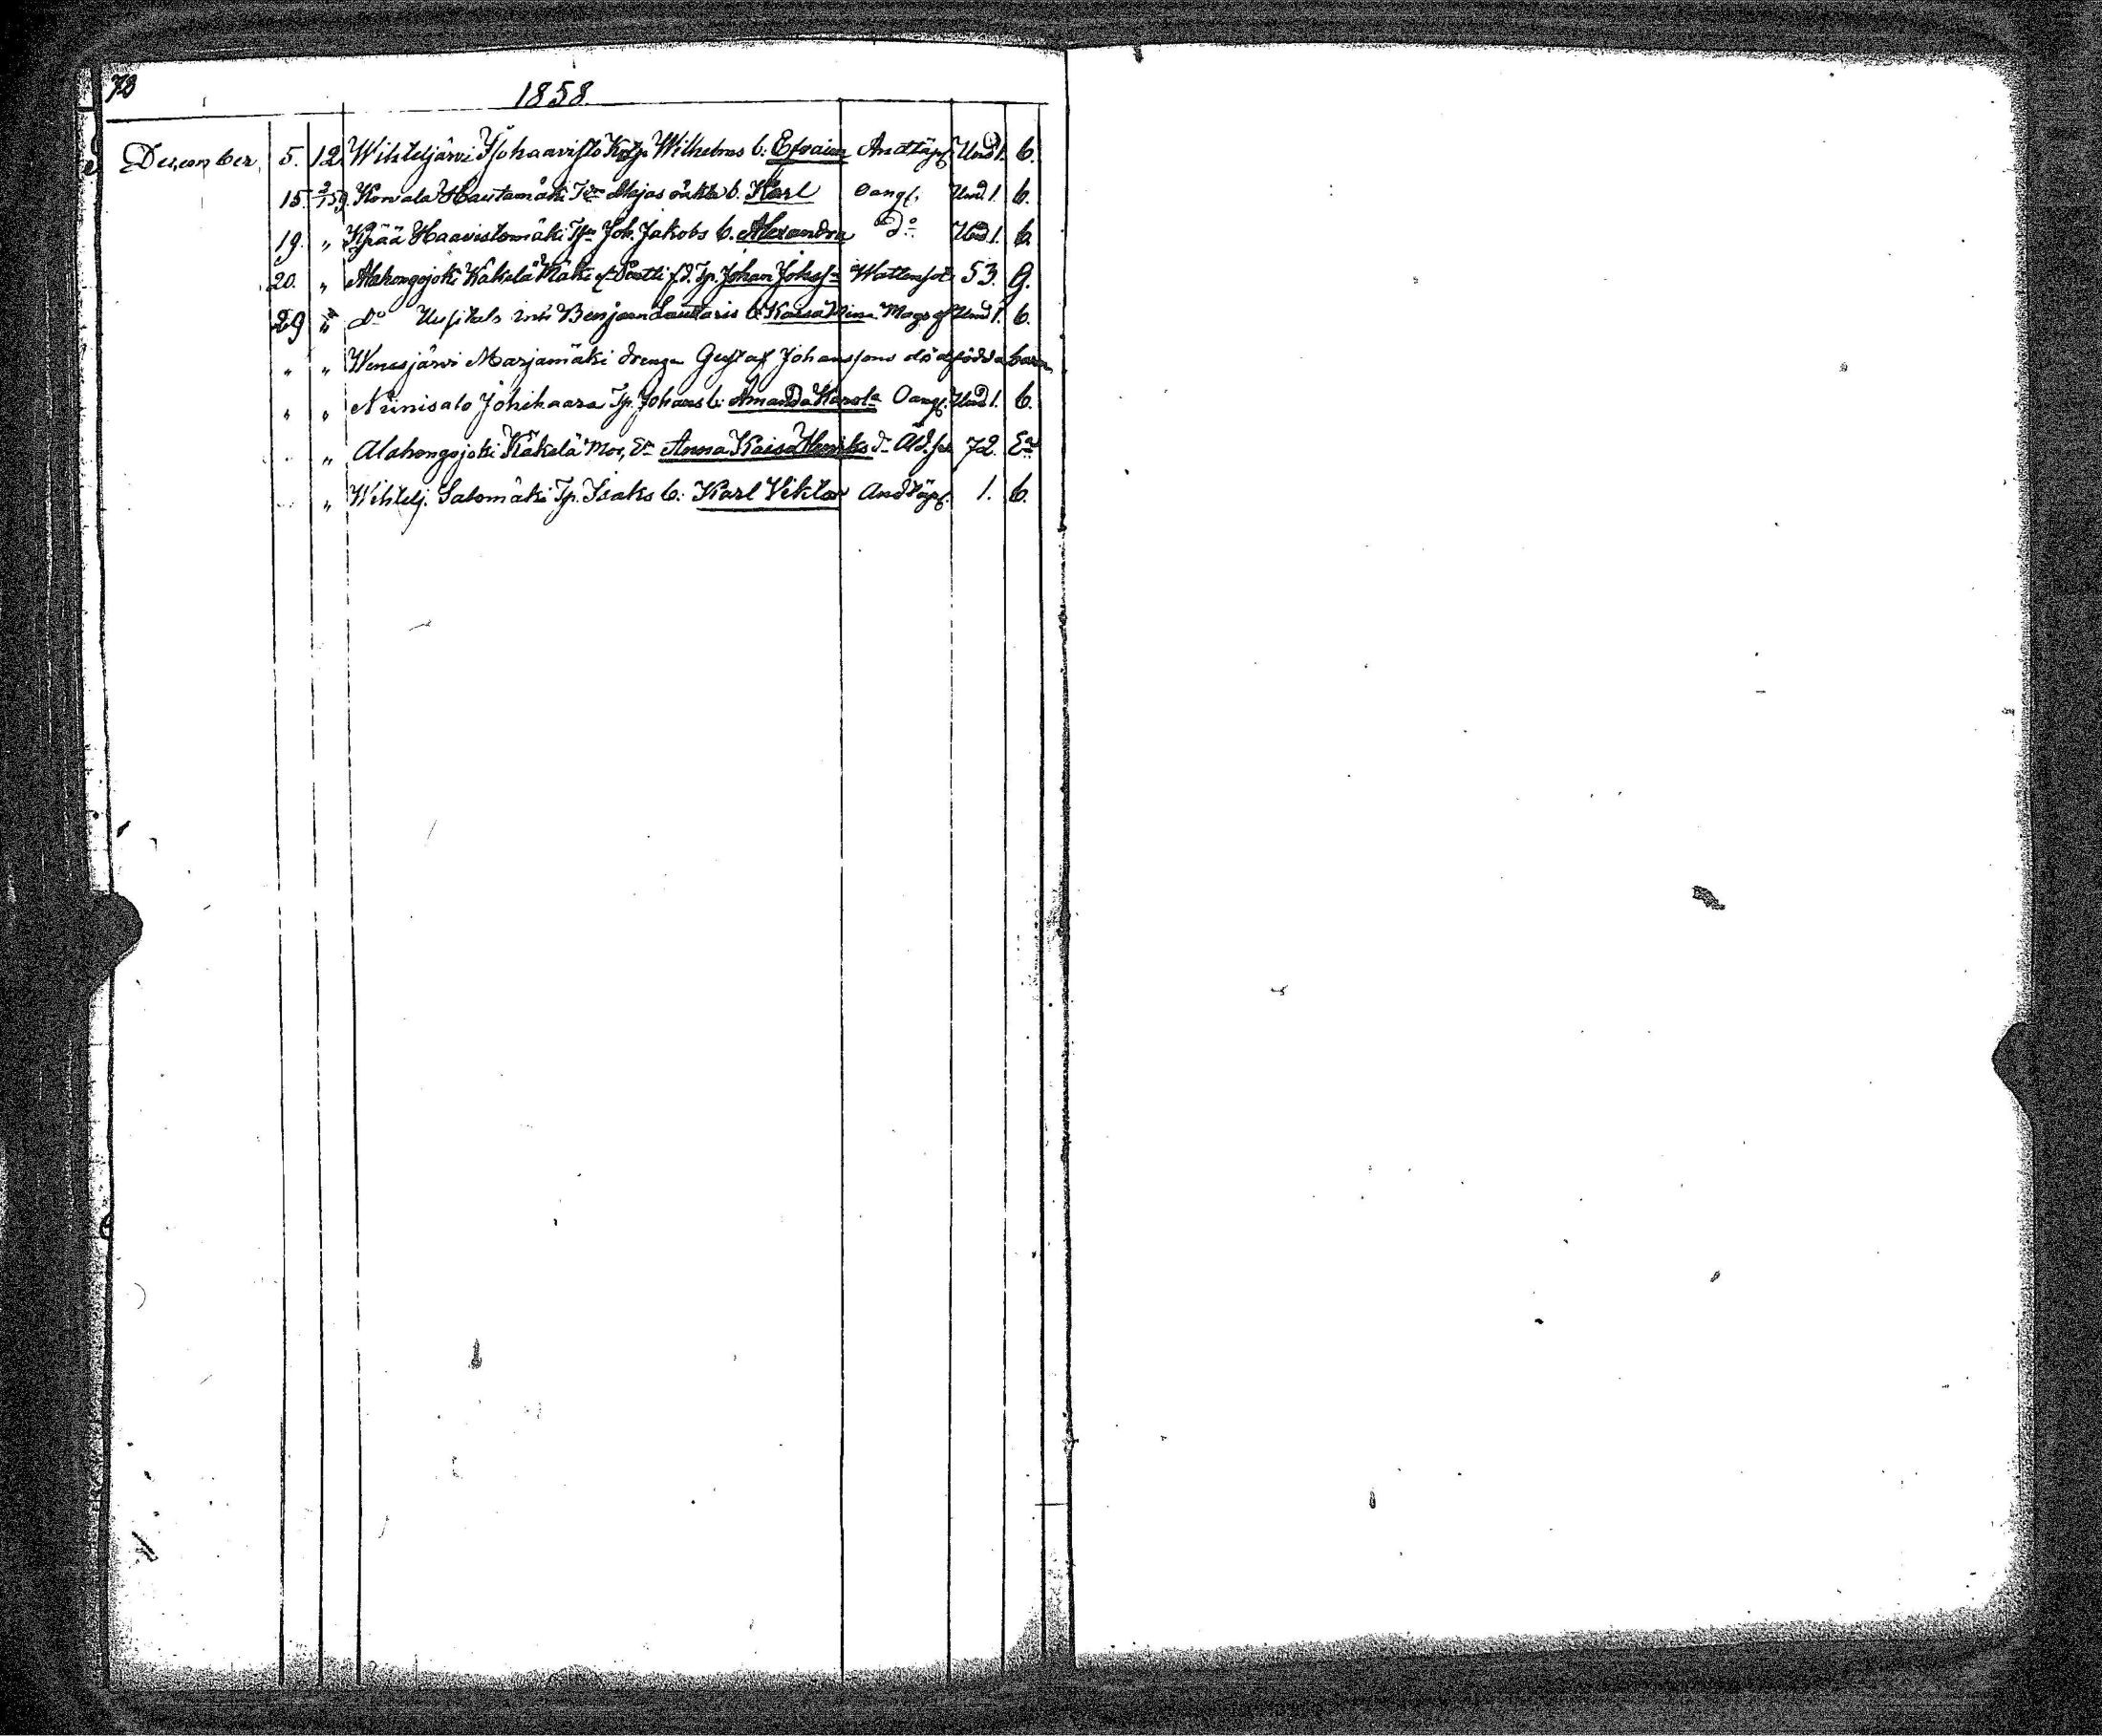 78
1858.
December. 5. 12. Wihteljärvi Isohaavisto Wilhelms b: Efraim Andtäpf. Und 1. b.
15. 2/1 59 Korvala Hautamäki oäkta b. Karl Oangf. Und 1. b.
19. " Kyää Haavistomäki Joh. Jakobs b. Alexandra Do Und 1. b.
20. " Alahongojoki Käkelä Mäki f.d. Tp. Johan Johsfn Wattensot 53. G.
29 " do inh Benjam Lautaris b. Kaisa Mina Magr Und 1. b.
" " Wenesjärvi Marjamäki drengn Gustaf Johanssons dödfödda barn
" " Niinisalo Johikaara Tp. Johans b: Amanda Karola Oangf. Und 1. b.
" " Alahongojoki Käkelä Mor, En Anna Kaisa Henriks dr Åld. 72. En
" " Wihtelj. Salomäki Tp. Isaks b: Karl Viktor Andtäpf. 1. b.